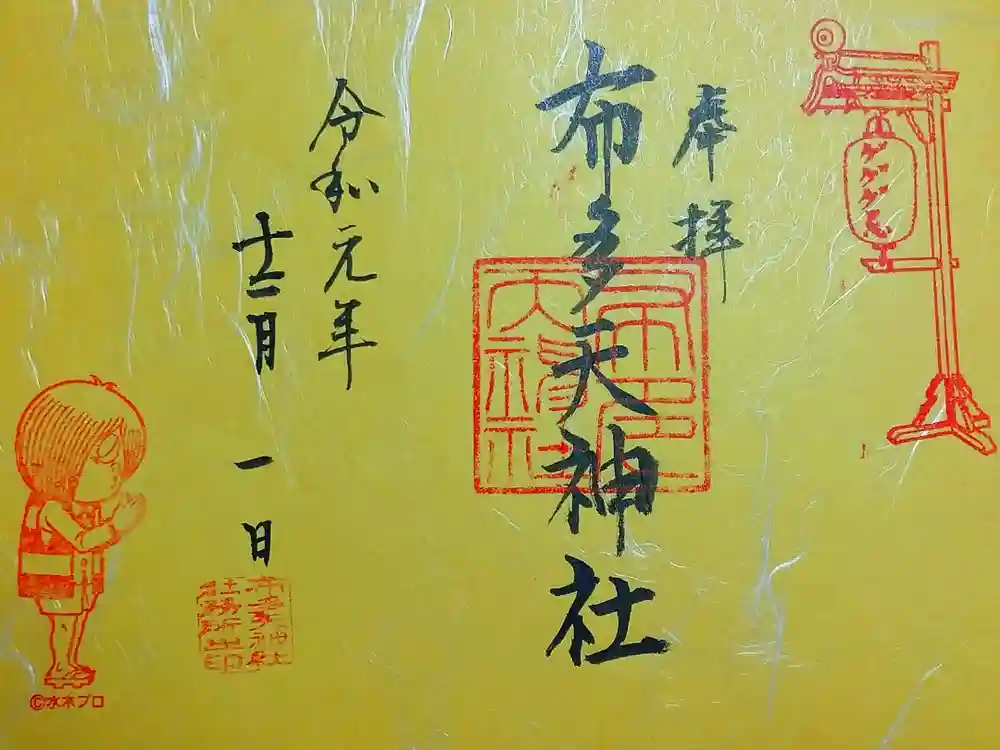 ゲゲゲ
奉拝
布多天神社
令和元年
十二月一日
布多天神社
社務所之印
©水木プロ